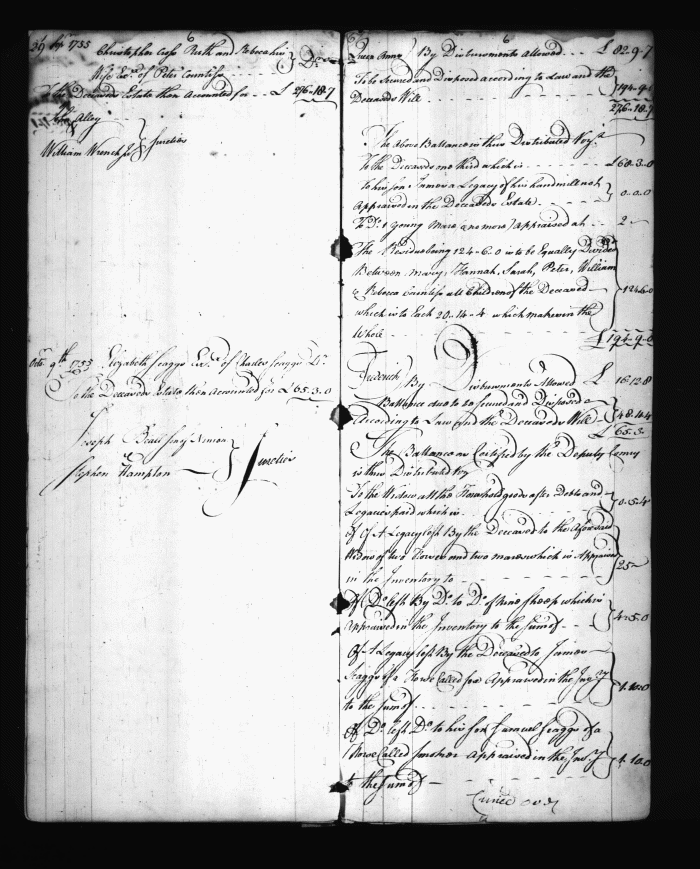 1755 Christopher Cross Ruth and Rebecca his
Wife Exrs of Peter Countiss
To the Deceaseds Estate then Accounted for £ 276-18-7
John Alley
William Wrench Jr } Sureties
Octr 9th 1755 Elizabeth Scaggs Exx of Charles Scaggs
To the Deceaseds Estate then Accounted for £ 65.3.0
Joseph Beall Senr
Stephen Hampton } Sureties
Queen Anns By Disbursments Allowed £ 82.9.7
To be Secured and Disposed according to Law and the
Deceaseds Will 194-9-0
276-18-7
The above Ballance is thus Distributed Vizt
To the Deceaseds third which is £ 68.3.0
To his son a Legacy of his handmill not
Appraised in the Deceaseds Estate 0.0.0
To Do 1 Young Mare (no more) appraised at 2
The Residue being 124-6-0 is to be Equally Divided
Between Mary, Hannah, Sarah, Peter, William
& Rebecca Countiss all Children of the Deceased 124.6.0
which is to Each 20-14-4 which makes in the
Whole £ 194-9-0
Frederick By Disbursments Allowed £ 16.13.8
Ballance due to be Secured and Disposed
According to Law and the Deceaseds Will 48.14.4
£ 65.3.
The Ballance as Certified by the Deputy Comry
is thus Distributed Viz
To the Widow all the Household goods after Debts and
Legacies paid which is
of A Legacy left By the Deceased to the Aforesaid
Widow of two Horses and two mares which is Appraised
in the Inventory to 25
Of Do left By Do to Do of nine sheep which is
Appraised in the Inventory to the Sum of
Of A Legacy left By the Deceased to
Scaggs of a Horse Called Fox Appraised in the Invy
to the Sum of 4.10.0
Of Do left Do to his Son Samuel Scaggs of a
Horse Called Appraised in the Invy
to the Sum of 4.10.0
over